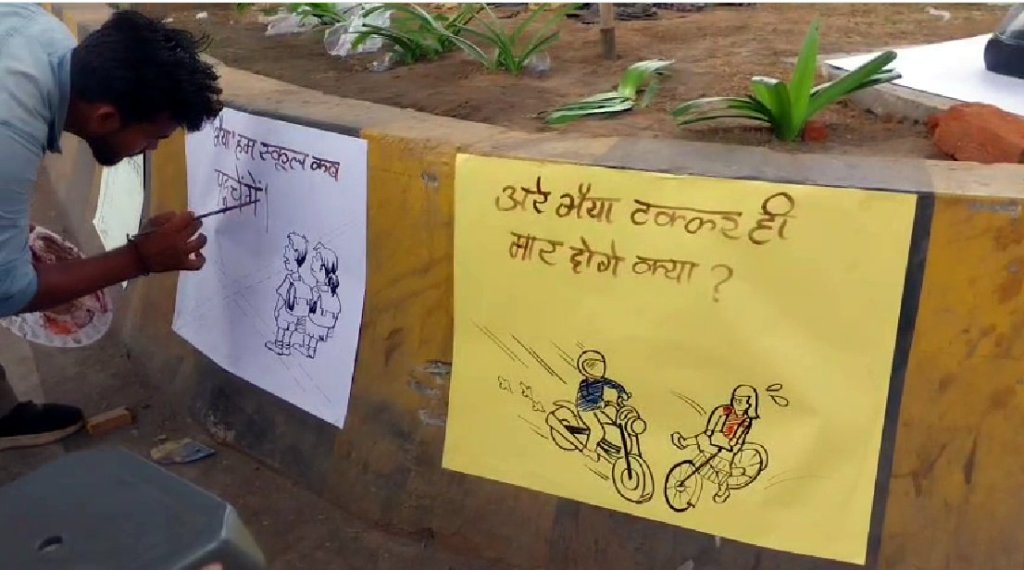 भैया हम स्कूल कब
पहुचेंगे।
अरे भैया टक्कर ही
मार दोगे क्या ?